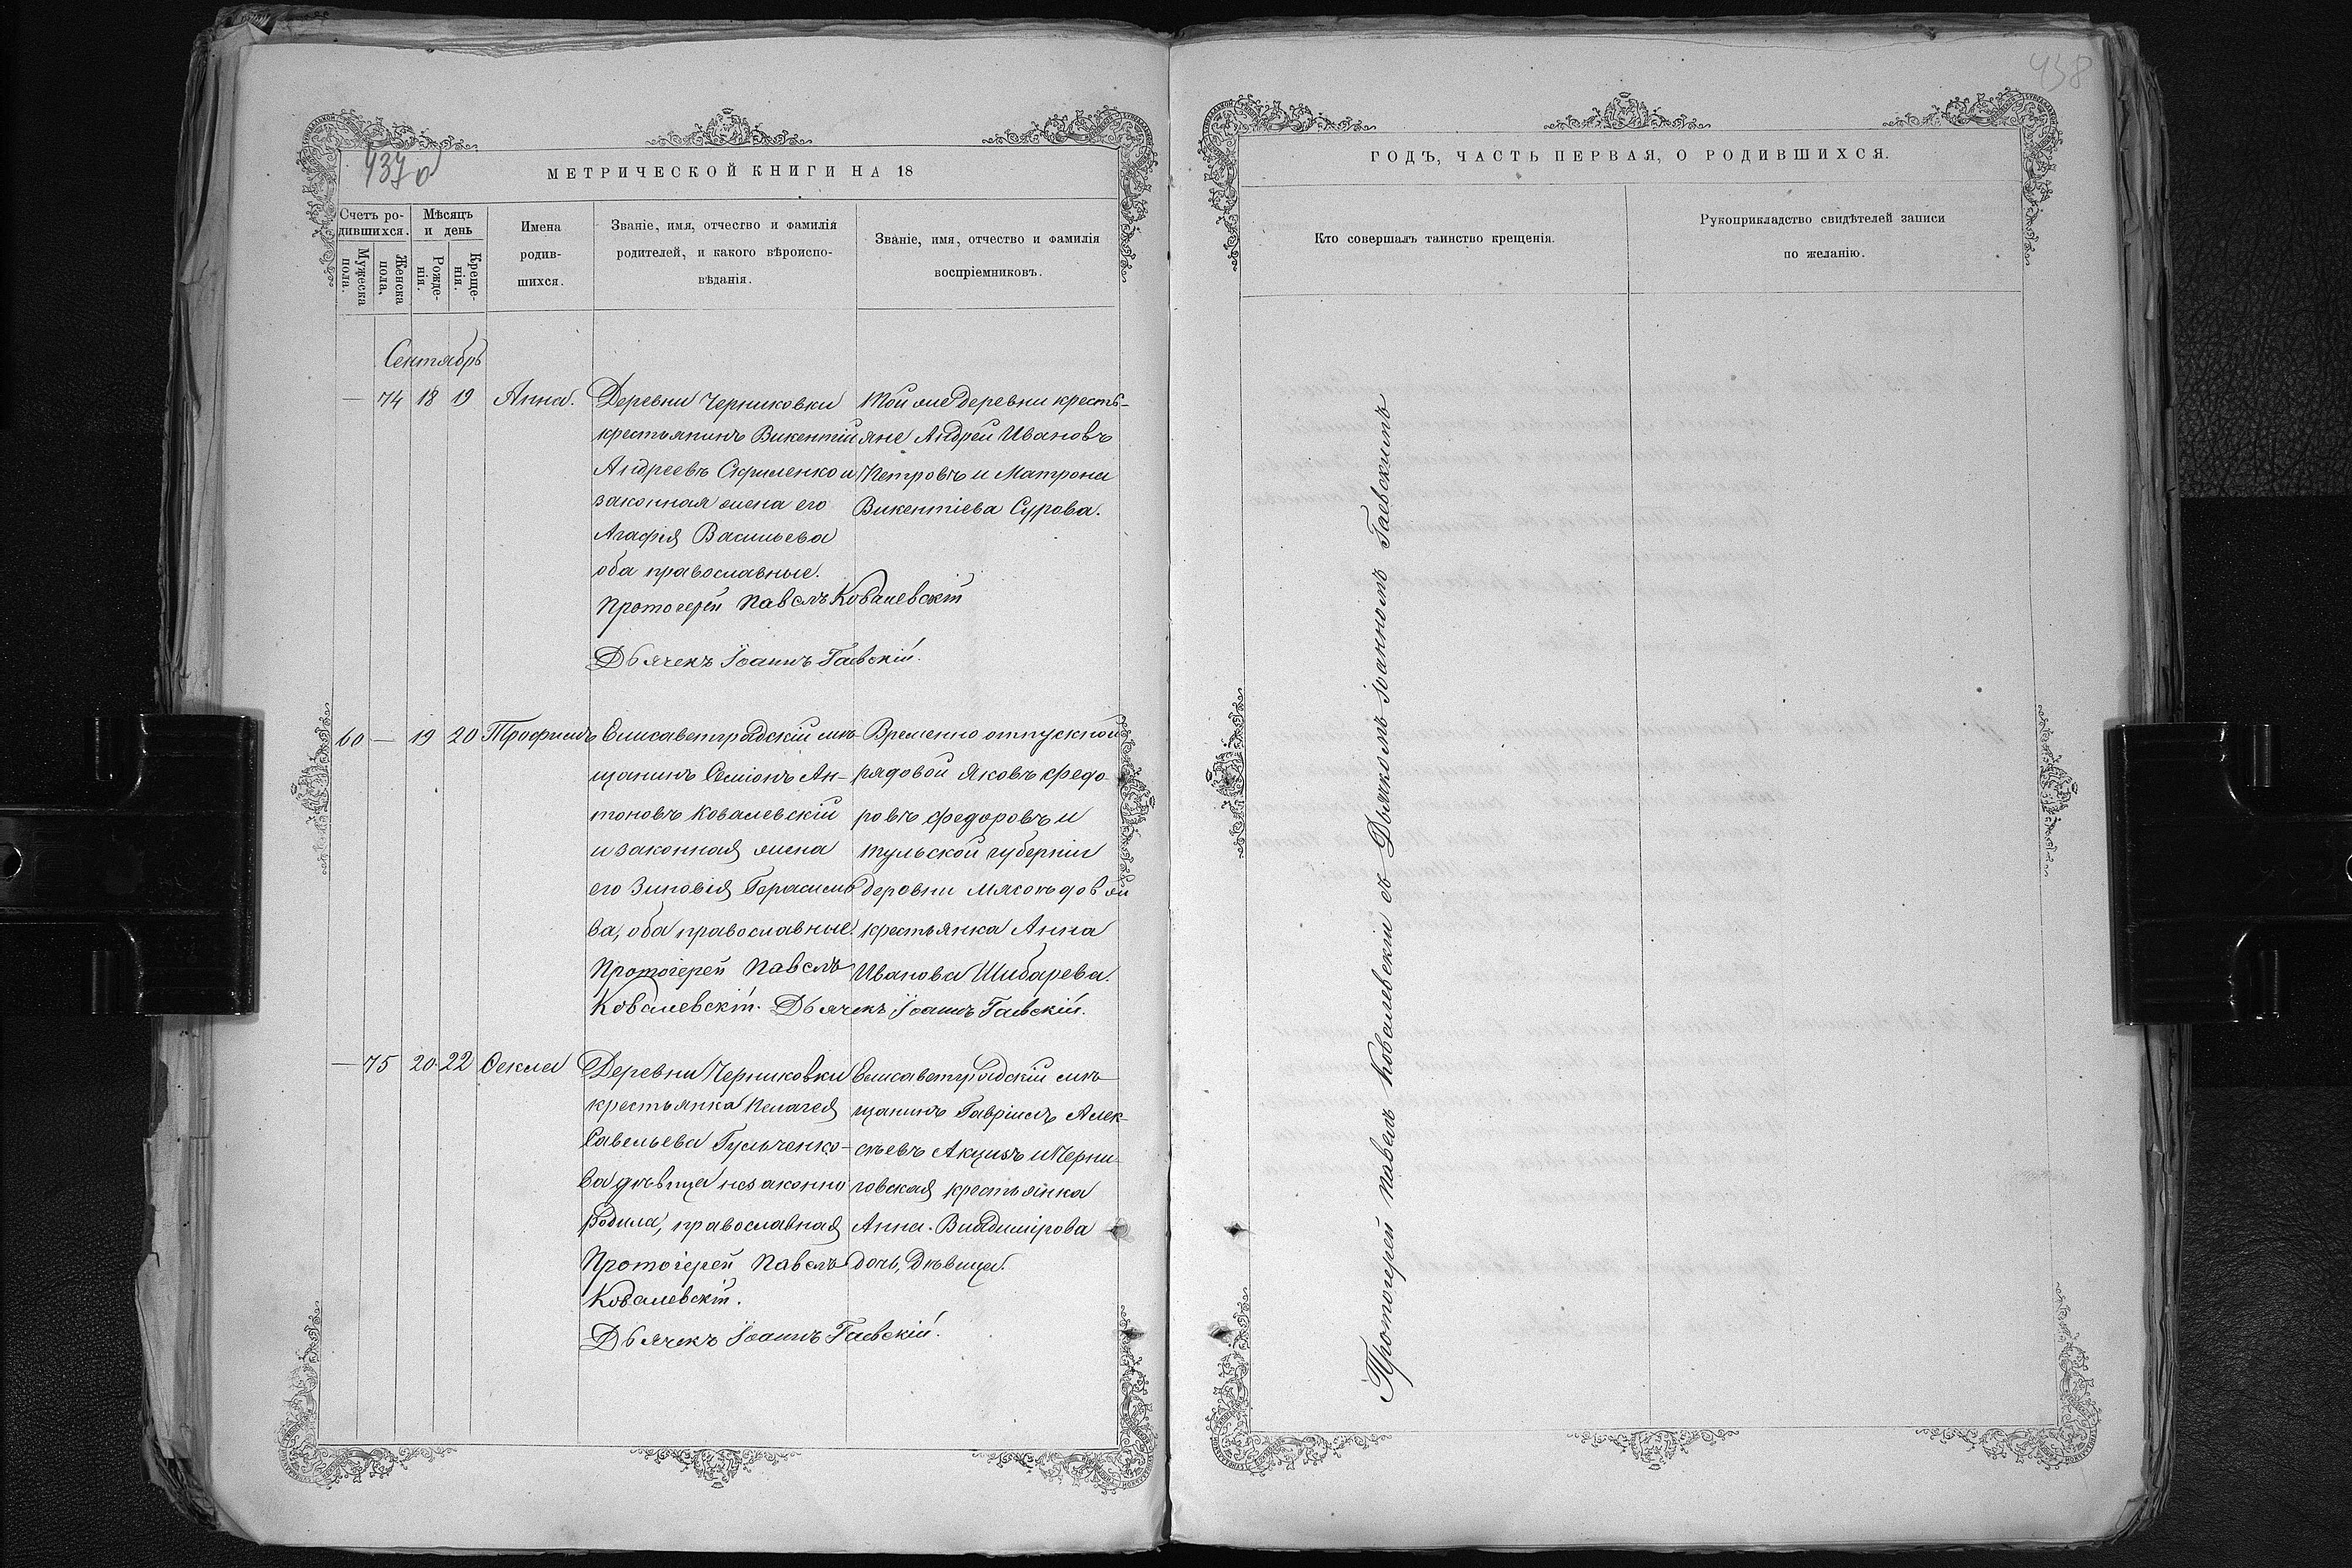 437об
МЕТРИЧЕСКОЙ КНИГИ НА 18
Счетъ ро-
дившихся.
Мужеска
пола.
Женска
пола.
Мѣсяцъ
и день
Рожде-
нія.
Креще-
нія.
Имена
родив-
шихся.
Званіе, имя, отчество и фамилія
родителей, и какого вѣроиспо-
вѣданія.
Званіе, имя, отчество и фамилія
воспріемниковъ.
Сентябрь
— 74 18 19 Анна.
Деревни Черниковки
крестьянинъ Викентій
Андреевъ и
законная жена его
Агафія Васильева
оба православные.
Протоіерей Павелъ Ковалевскій
Дьячекъ Іоаннъ Гаевскій.
Той же деревни кресть-
яне Андрей Ивановъ
Петровъ и Матрона
Викентіева Сурова.
60 — 19 20 Трофимъ
Елисаветградскій мѣ-
щанинъ Семіонъ Ан-
тоновъ Ковалевскій
и законная жена
его Зиновія Герасимо
ва, оба православные.
Протоіерей Павелъ
Ковалевскій. Дьячекъ Іоаннъ Гаевскій.
Временно отпускной
рядовой Яковъ Федо-
ровъ Федоровъ и
Тульской губерніи
деровни
крестьянка Анна
Иванова Шибарева.
— 75 20 22 Ѳекла
Деревни Черниковки
крестьянка Пелагея
Савельева Гульченко-
ва дѣвица незаконно
родила, православная
Протоіерей Павелъ
Ковалевскій.
Дьячекъ Іоаннъ Гаевскій.
Елисаветградскій мѣ-
щанинъ Гавріилъ Алек-
сѣевъ и Черни-
говская крестьянка
Анна Владимірова
дочь, дѣвица.
438
ГОДЪ, ЧАСТЬ ПЕРВАЯ, О РОДИВШИХСЯ.
Кто совершалъ таинство крещенія.
Рукоприкладство свидѣтелей записи
по желанію.
Протоіерей Павелъ Ковалевскій съ Дьячкомъ Іоанномъ Гаевскимъ